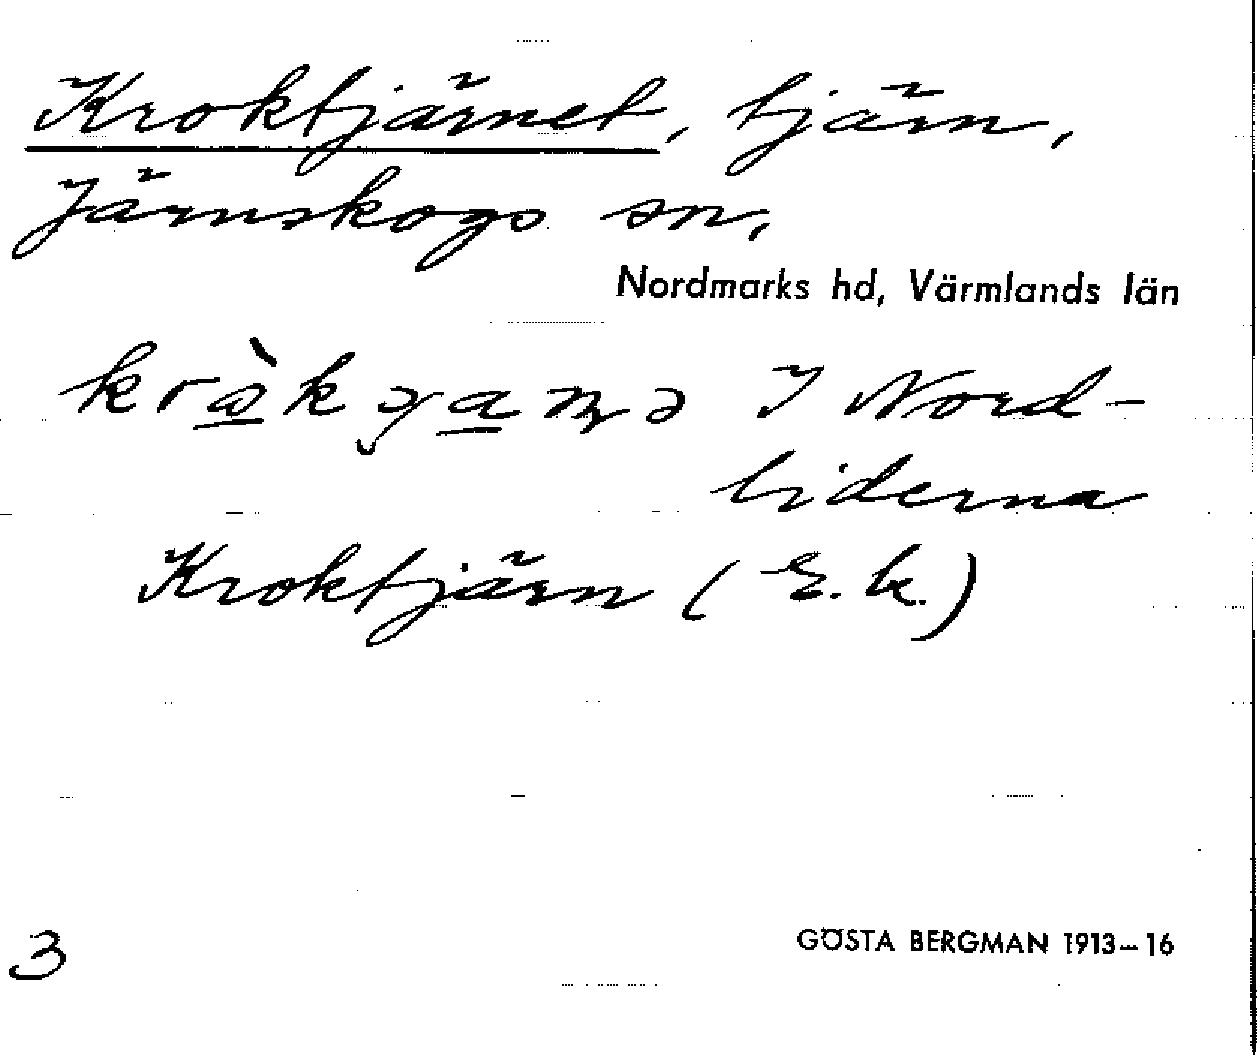 Kroktjärnet, tjärn,
Järnskogs sn,
Nordmarks hd, Värmlands län
I Nord-
liderna
Kroktjärn (E.k.)
3
GÖSTA BERGMAN 1913–16